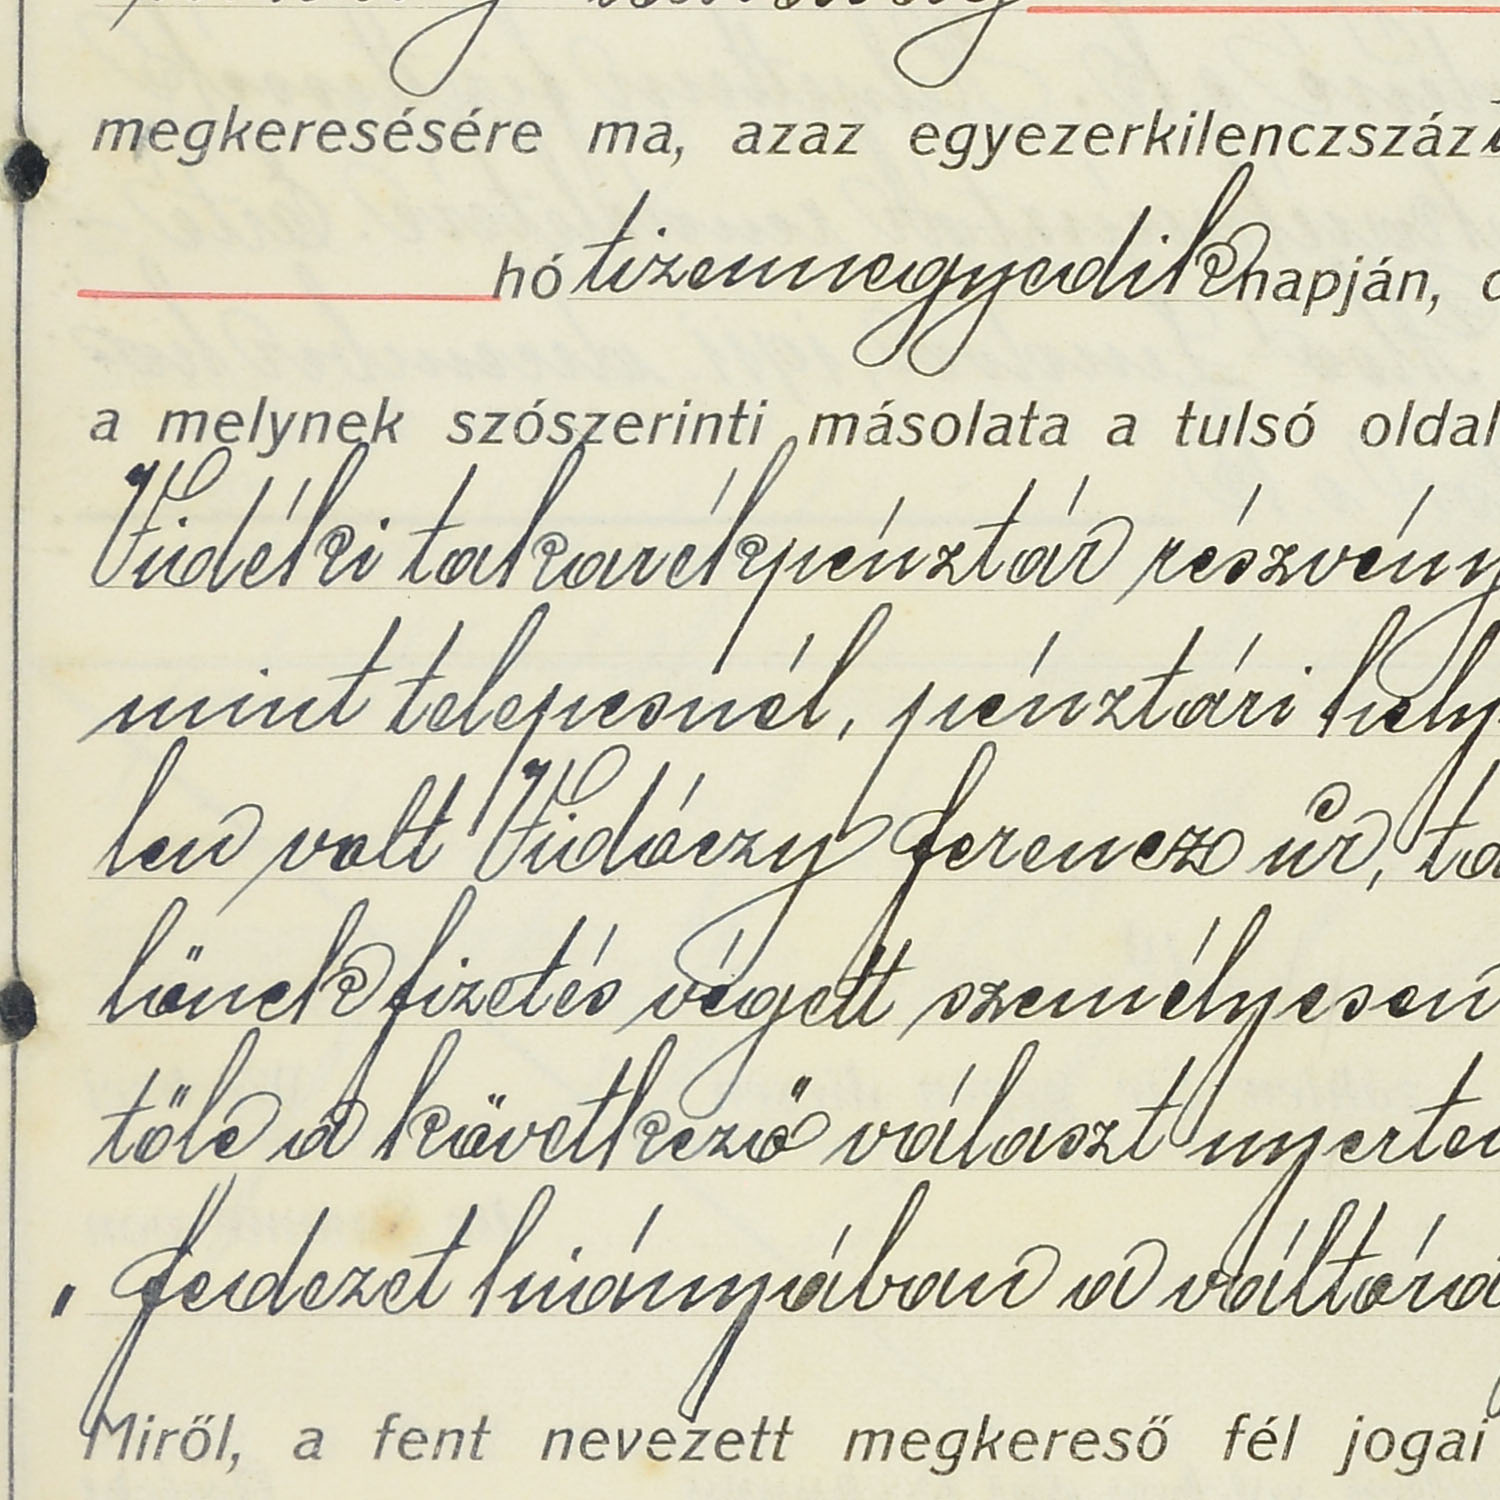 megkeresésére ma, azaz egyezerkilenczszáz
hó tizennegyedik napján,
a melynek szószerinti másolata a tulsó oldal
Vidéki takarékpénztár részvény
mint telepesnél, pénztári hely
len volt Vidóczy Ferencz úr,
lönek fizetés végett személyesen
töle a következő választ nyertem
„ fedezet hiányában a váltóra
Miről, a fent nevezett megkereső fél jogai